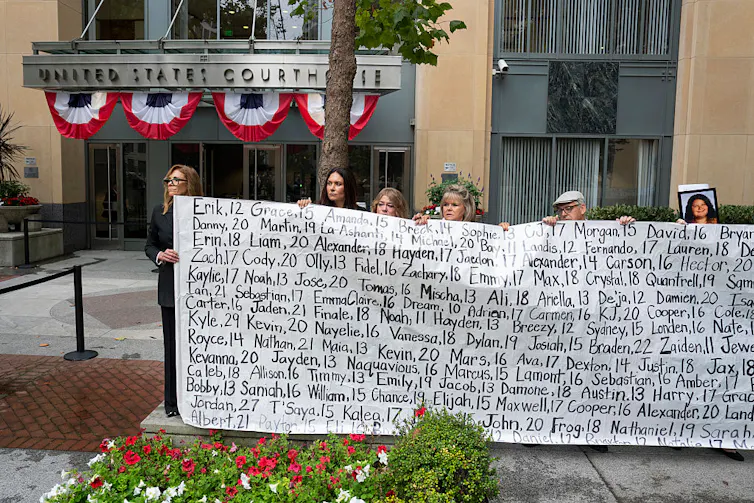 UNITED STATES COURTHOUSE
Erik, 12 Grace, 15 Amanda, 15 Breck, 14 Sophie, CJ, 17 Morgan, 15 David, 16 Bryan
Danny, 20 Martin, 19 La-Ashanti, Michael, 20 Bay, Landis, 12 Fernando, 17 Lauren, 18 De
Erin, 18 Liam, 20 Alexander, 18 Hayden, 17 Jaedon, 17 Alexander, 14 Carson, 16 Hector, 20
Zach, 17 Cody, 20 Olly, 13 Fidel, 16 Zachary, 18 Emmy, 17 Max, 18 Crystal, 18 Quantrell, 19 Sam
Kaylie, 17 Noah, 13 Jose, 20 Tomas, 16 Mischa, 13 Ali, 18 Ariella, 13 De'ja, 12 Damien, 20
Ian, 21 Sebastian, 17 EmmaClaire, 16 Dream, 10 Adrien, 17 Carmen, 16 KJ, 20 Cooper, 16 Cole, 18
Carter, 16 Jaden, 21 Finale, 18 Noah, 11 Hayden, 13 Breezy, 12 Sydney, 15 Londen, 16 Nate,
Kyle, 29 Kevin, 20 Nayelie, 16 Vanessa, 18 Dylan, 19 Josiah, 15 Braden, 22 Zaiden, 11 Jewe
Royce, 14 Nathan, 21 Maia, 13 Kevin, 20 Mars, 16 Ava, 17 Dexton, 14 Justin, 18 Jax, 18
Kevanna, 20 Jayden, 13 Naquavious, 16 Marcus, 15 Lamont, 16 Sebastian, 16 Amber, 17
Caleb, 18 Allison, 16 Timmy, 13 Emily, 19 Jacob, 13 Damone, 18 Austin, 13 Harry, 17 Grac
Bobby, 13 Saniah, 16 William, 15 Chance, 19 Elijah, 15 Maxwell, 17 Cooper, 16 Alexander, 20 Land
Jordan, 27 T'Saya, 15 Kalea, 17 John, 20 Frog, 18 Nathaniel, 19 Sarah
Albert, 21 Payton, 15 Eli, Daniel, 12 Braxton, Natalie, 17